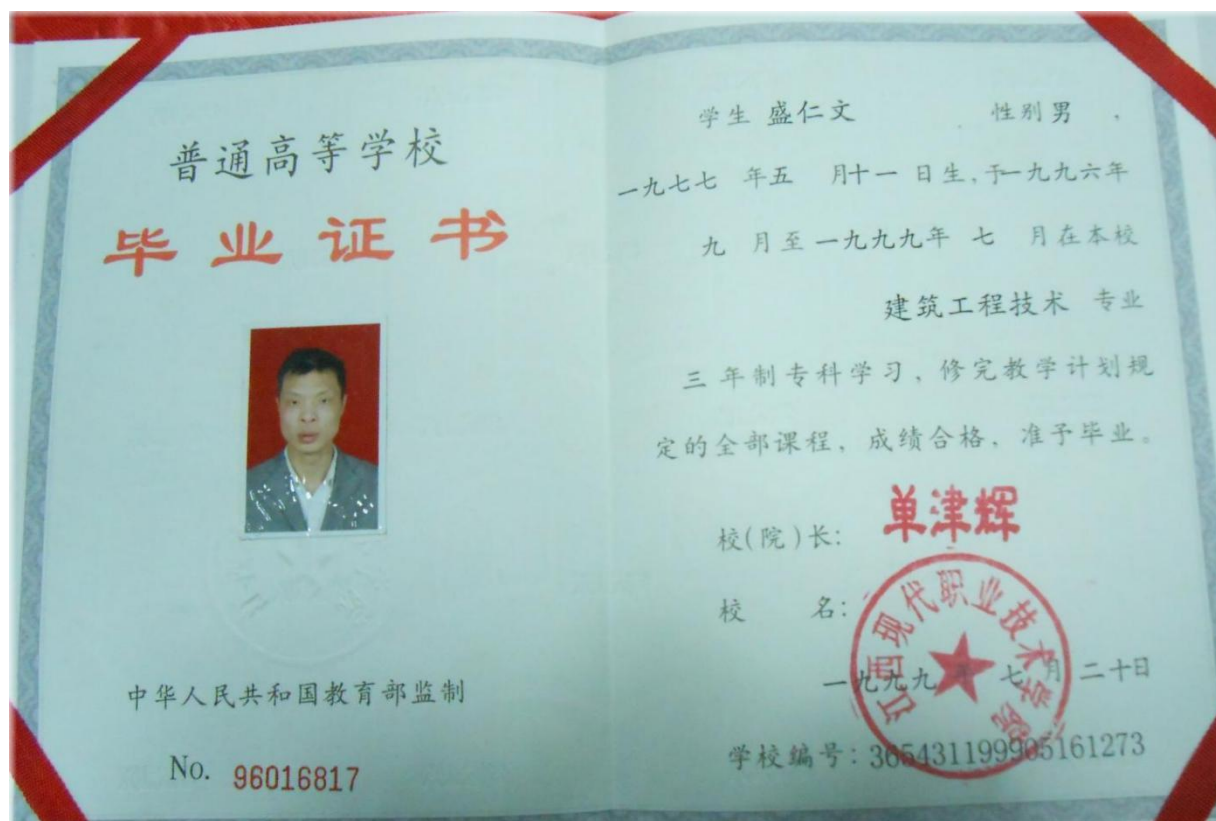 普通高等学校
毕业证书
中华人民共和国教育部监制
No. 96016817
学生 盛仁文 性别 男 ，
一九七七 年五 月十一 日生，于一九九六年
九 月至一九九九年 七 月在本校
建筑工程技术 专业
三 年制专科学习，修完教学计划规
定的全部课程，成绩合格，准予毕业。
校(院)长：单津辉
校 名：
江西现代职业技术学院
一九九九 年 七 月 二十日
学校编号：365431199905161273